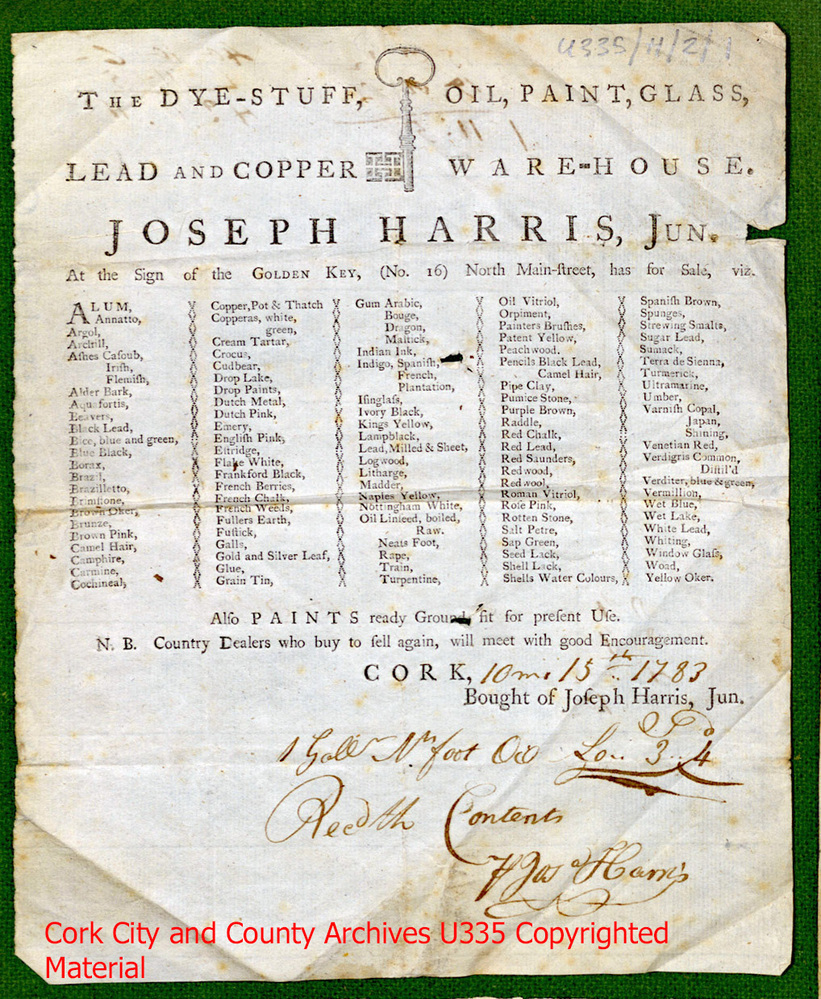 U335/H/2/1
THE DYE-STUFF, OIL, PAINT, GLASS,
LEAD AND COPPER WARE-HOUSE.
JOSEPH HARRIS, JUN.
At the Sign of the GOLDEN KEY, (No. 16) North Main-ſtreet, has for Sale, viz.
ALUM,
Annatto,
Argol,
Archill,
Aſhes Caſoub,
Iriſh,
Flemiſh,
Alder Bark,
Aquafortis,
Beavers,
Black Lead,
Bice, blue and green,
Blue Black,
Borax,
Brazil,
Brazilletto,
Brimſtone,
Brown Oker,
Brunze,
Brown Pink,
Camel Hair,
Camphire,
Carmine,
Cochineal,
Copper, Pot & Thatch
Copperas, white,
green,
Cream Tartar,
Crocus,
Cudbear,
Drop Lake,
Drop Paints,
Dutch Metal,
Dutch Pink,
Emery,
Engliſh Pink,
Eltridge,
Flake White,
Frankford Black,
French Berries,
French Chalk,
French Weeds,
Fullers Earth,
Fuſtick,
Galls,
Gold and Silver Leaf,
Glue,
Grain Tin,
Gum Arabic,
Bouge,
Dragon,
Maſtick,
Indian Ink,
Indigo, Spaniſh,
French,
Plantation,
Iſinglaſs,
Ivory Black,
Kings Yellow,
Lampblack,
Lead, Milled & Sheet,
Logwood,
Litharge,
Madder,
Naples Yellow,
Nottingham White,
Oil Linſeed, boiled,
Raw.
Neats Foot,
Rape,
Train,
Turpentine,
Oil Vitriol,
Orpiment,
Painters Bruſhes,
Patent Yellow,
Peachwood.
Pencils Black Lead,
Camel Hair,
Pipe Clay,
Pumice Stone,
Purple Brown,
Raddle,
Red Chalk,
Red Lead,
Red Saunders,
Redwood,
Redwool,
Roman Vitriol,
Roſe Pink,
Rotten Stone,
Salt Petre,
Sap Green,
Seed Lack,
Shell Lack,
Shells Water Colours,
Spaniſh Brown,
Spunges,
Strewing Smalts,
Sugar Lead,
Sumack,
Terra de Sienna,
Turmerick,
Ultramarine,
Umber,
Varniſh Copal,
Japan,
Shining,
Venetian Red,
Verdigris Common,
Diſtil'd
Verditer, blue & green,
Vermillion,
Wet Blue,
Wet Lake,
White Lead,
Whiting,
Window Glaſs,
Woad,
Yellow Oker.
Alſo PAINTS ready Ground, fit for preſent Uſe.
N. B. Country Dealers who buy to ſell again, will meet with good Encouragement.
CORK, 10 mo 15th 1783
Bought of Joſeph Harris, Jun.
1 Galln Nts foot Oil 3 4
Recd th Contents
Jos Harris
Cork City and County Archives U335 Copyrighted
Material